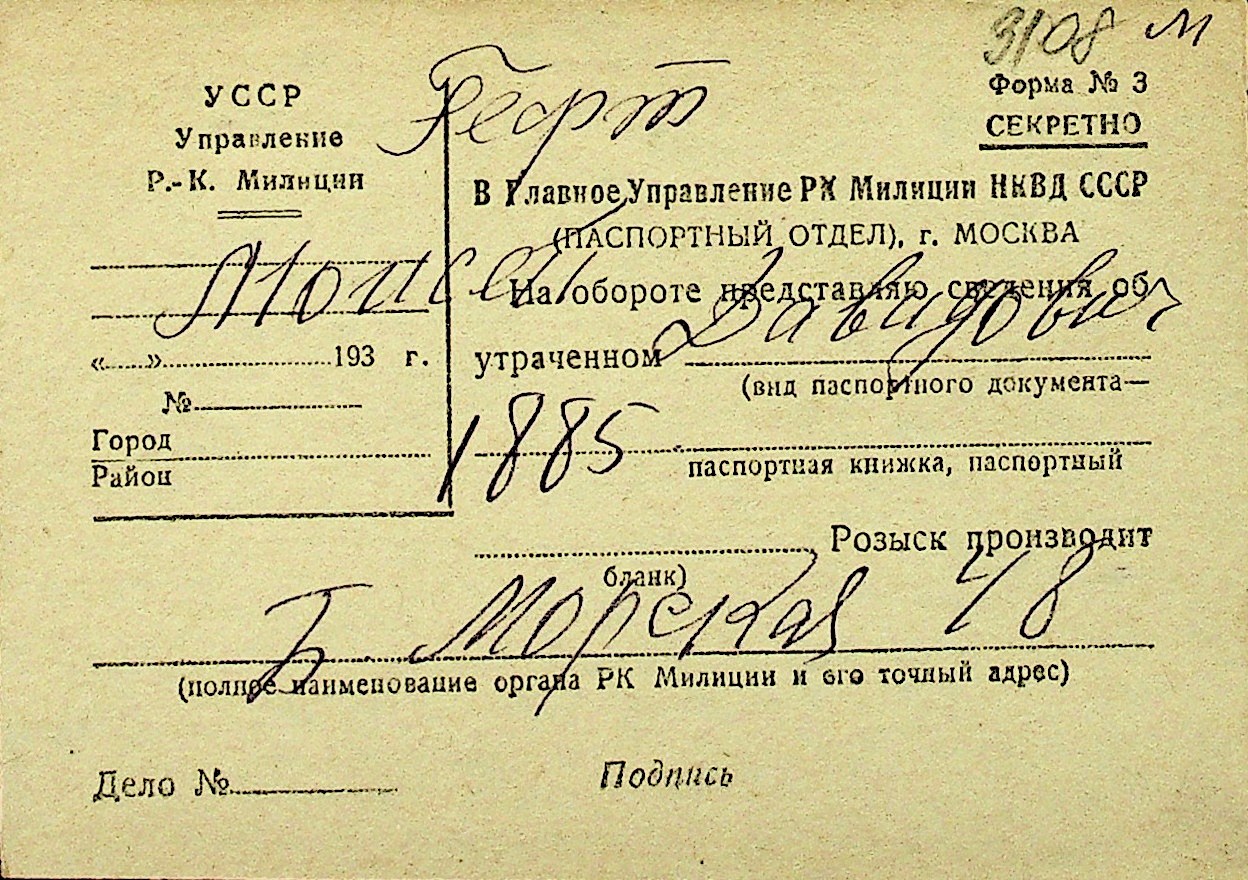 3108 м
УССР
Управление
Р.-К. Милиции
Гефт
Форма № 3
СЕКРЕТНО
В Главное Управление РК Милиции НКВД СССР
(ПАСПОРТНЫЙ ОТДЕЛ), г. МОСКВА
Моисей Давидович
На обороте представляю сведения об
утраченном
(вид паспортного документа—
« » 193 г.
№
1885
паспортная книжка, паспортный
Город
Район
Розыск производит
бланк)
Б. Морская 48
(полное наименование органа РК Милиции и его точный адрес)
Дело №
Подпись